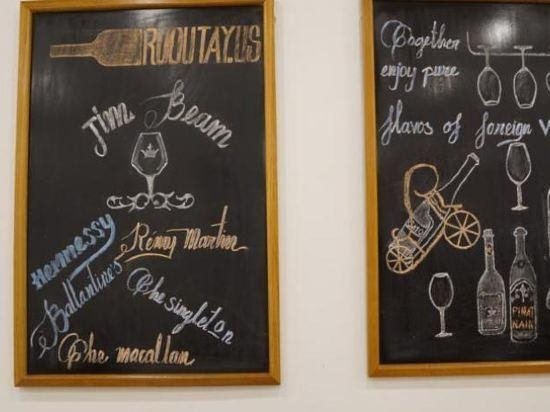 RUOUTAY.US
Jim Beam
Hennessy
Rémy Martin
Ballantine's
The singleton
The macallan
Together
enjoy pure
flavos of foreign
PINAT
NAIR